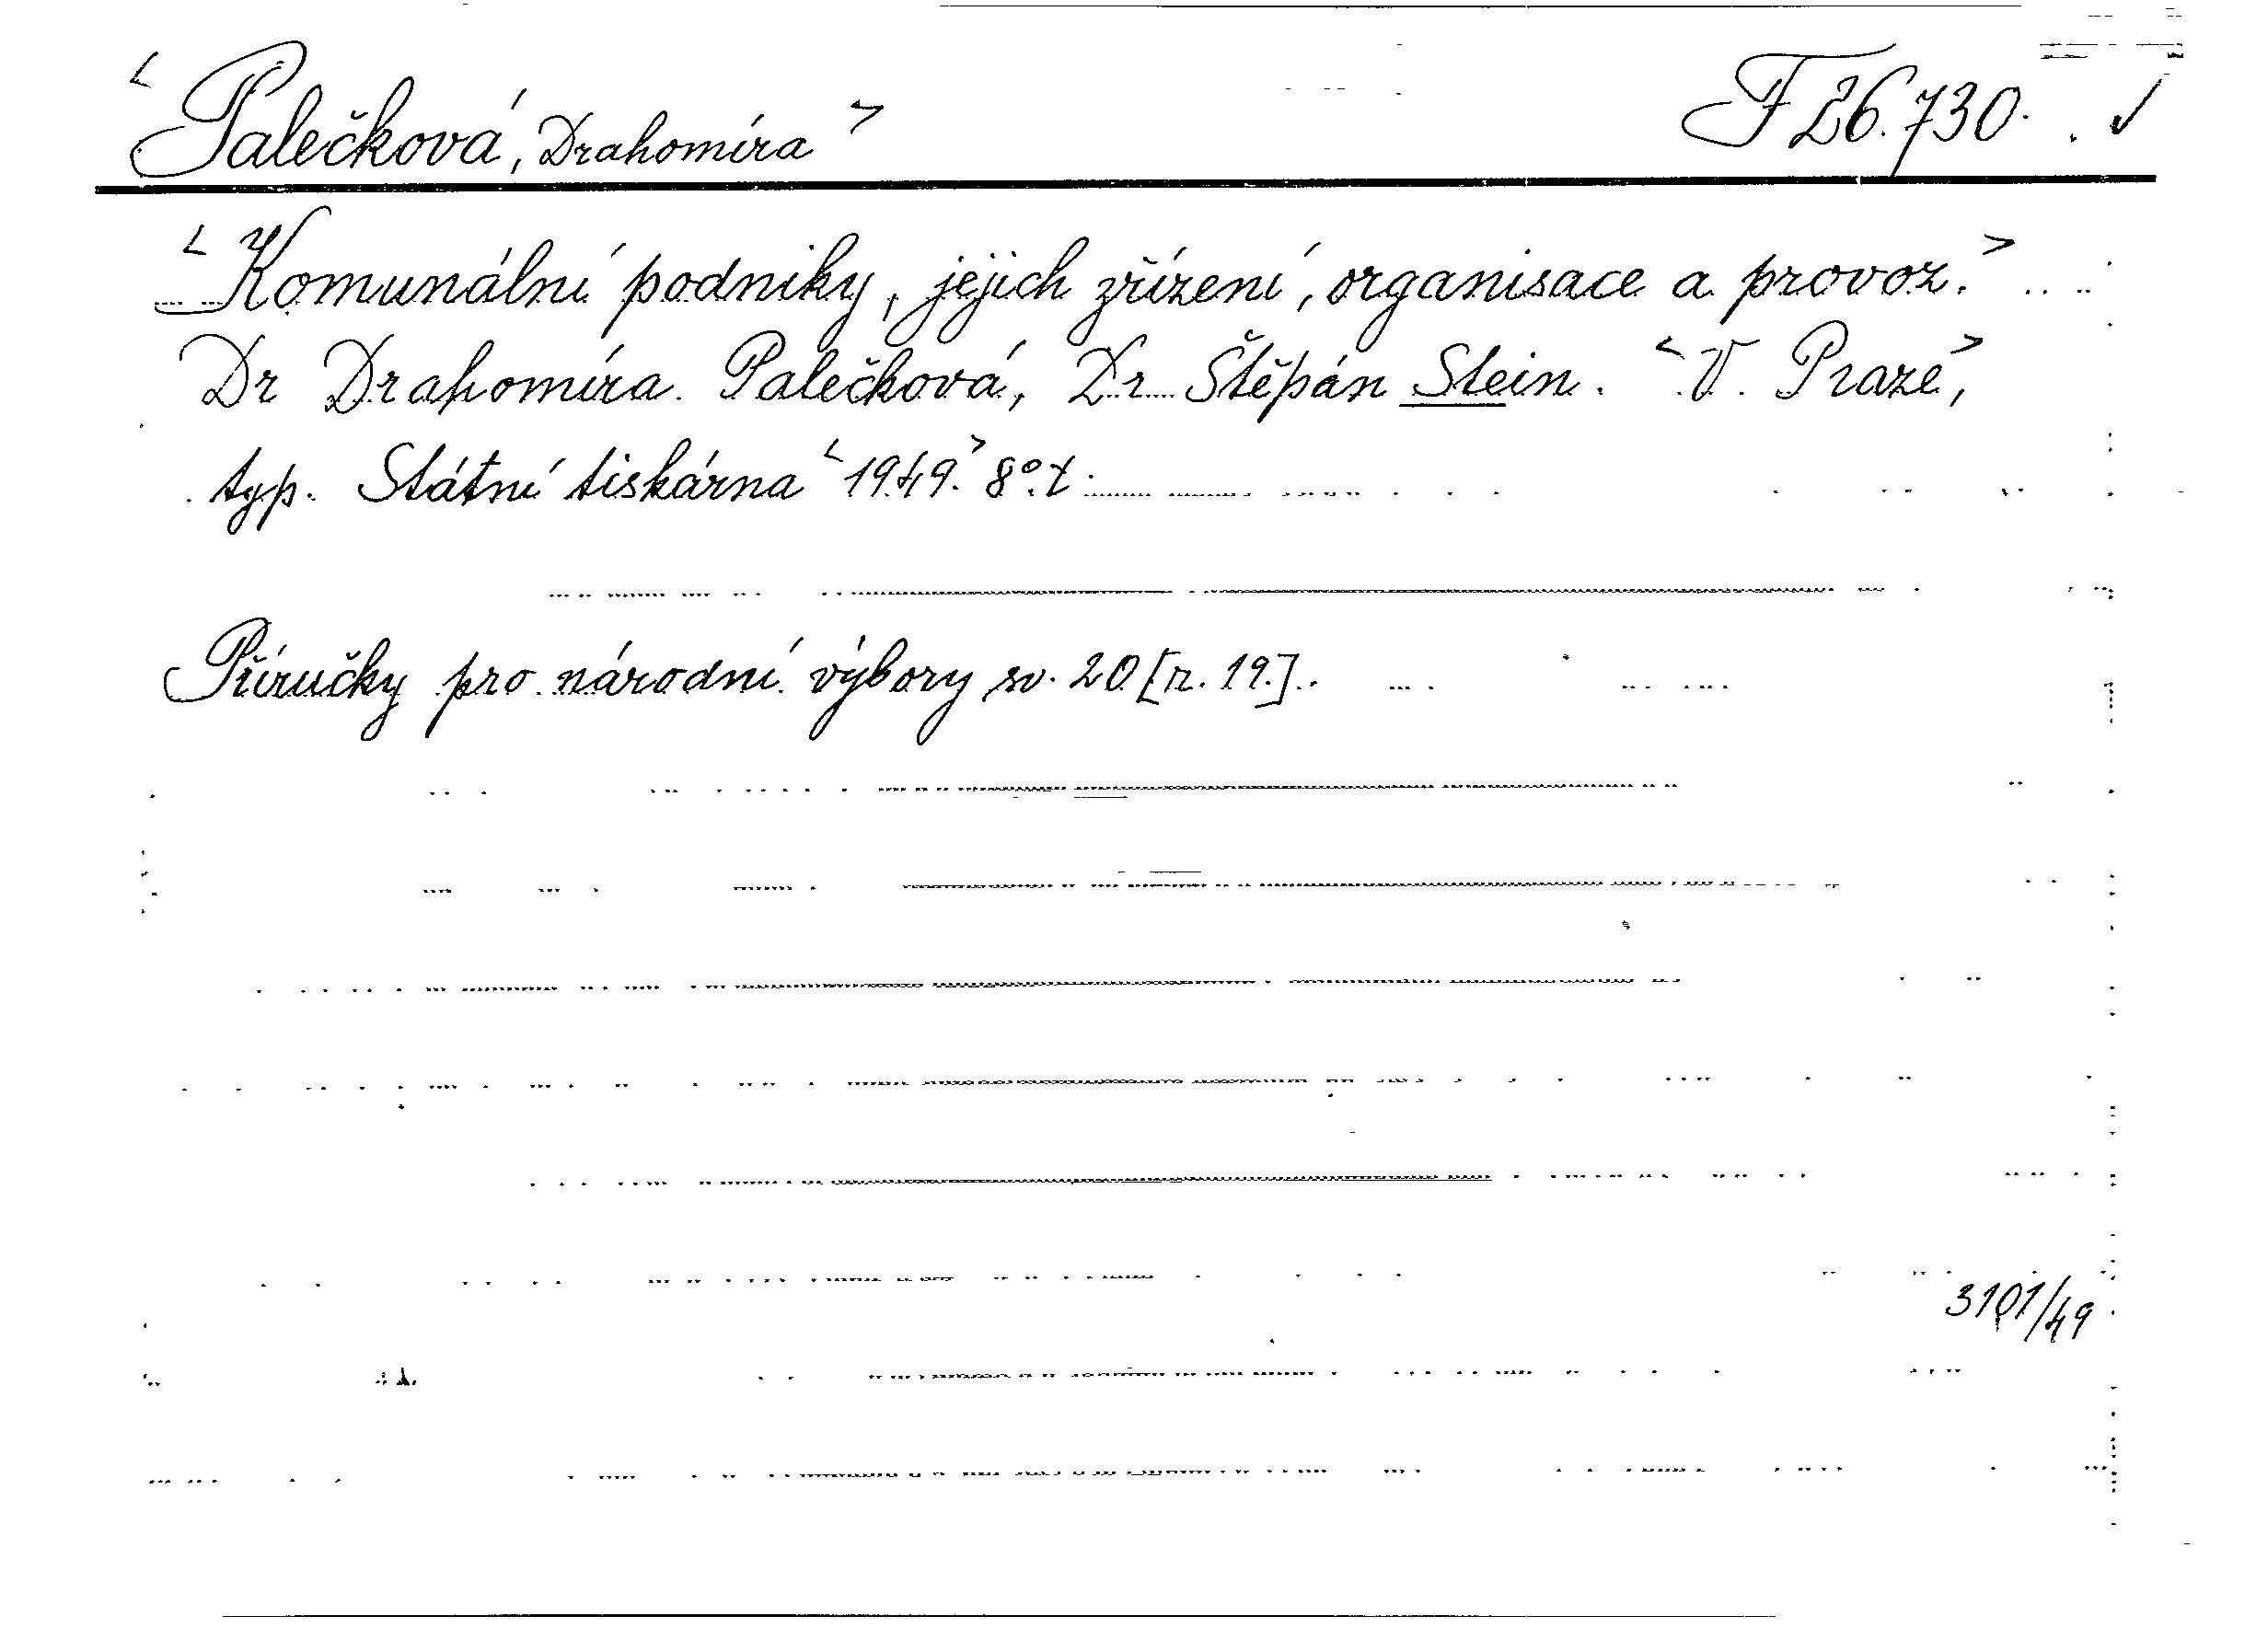 <Palečková, Drahomíra> F 26.730. ✓
<Komunální podniky, jejich zřízení, organisace a provoz.>
Dr Drahomíra Palečková, Dr Štěpán Stein. <V Praze>,
typ. Státní tiskárna <1949.> 8°.
Příručky pro národní výbory sv. 20 [r. 19.].
3101/49